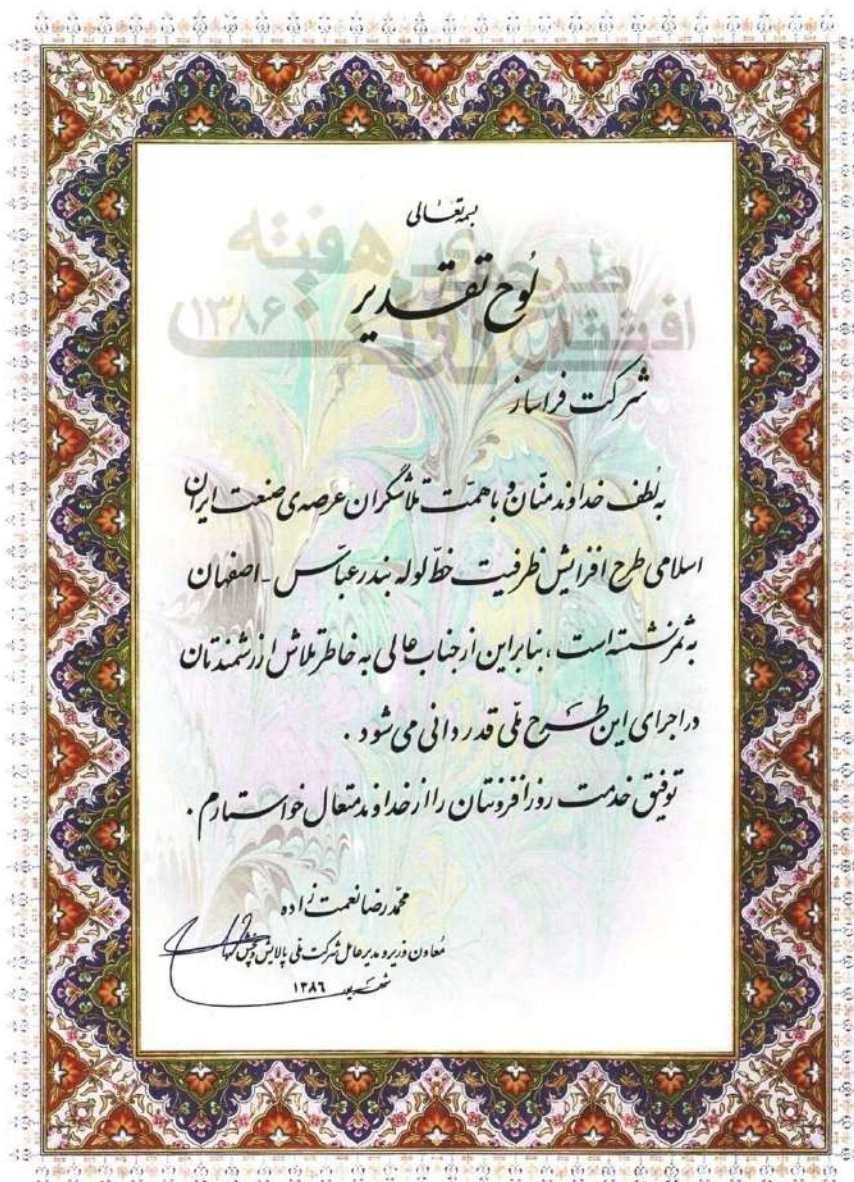 بسمه تعالی
لوح تقدیر
طرح‌های هفته
(۱۳۸۶
شرکت فراساز
به لطف خداوند منّان و با همّت تلاشگران عرصه‌ی صنعت ایران
اسلامی طرح افزایش ظرفیت خطّ لوله بندرعبّاس - اصفهان
به ثمر نشسته است ، بنابراین از جناب عالی به خاطر تلاش ارزشمندتان
در اجرای این طرح ملّی قدردانی می شود .
توفیق خدمت روزافزونتان را از خداوند متعال خواستارم .
محمّدرضا نعمت زاده
مُعاون وزیر و مدیرعامل شرکت ملّی پالایش و پخش
۱۳۸۶